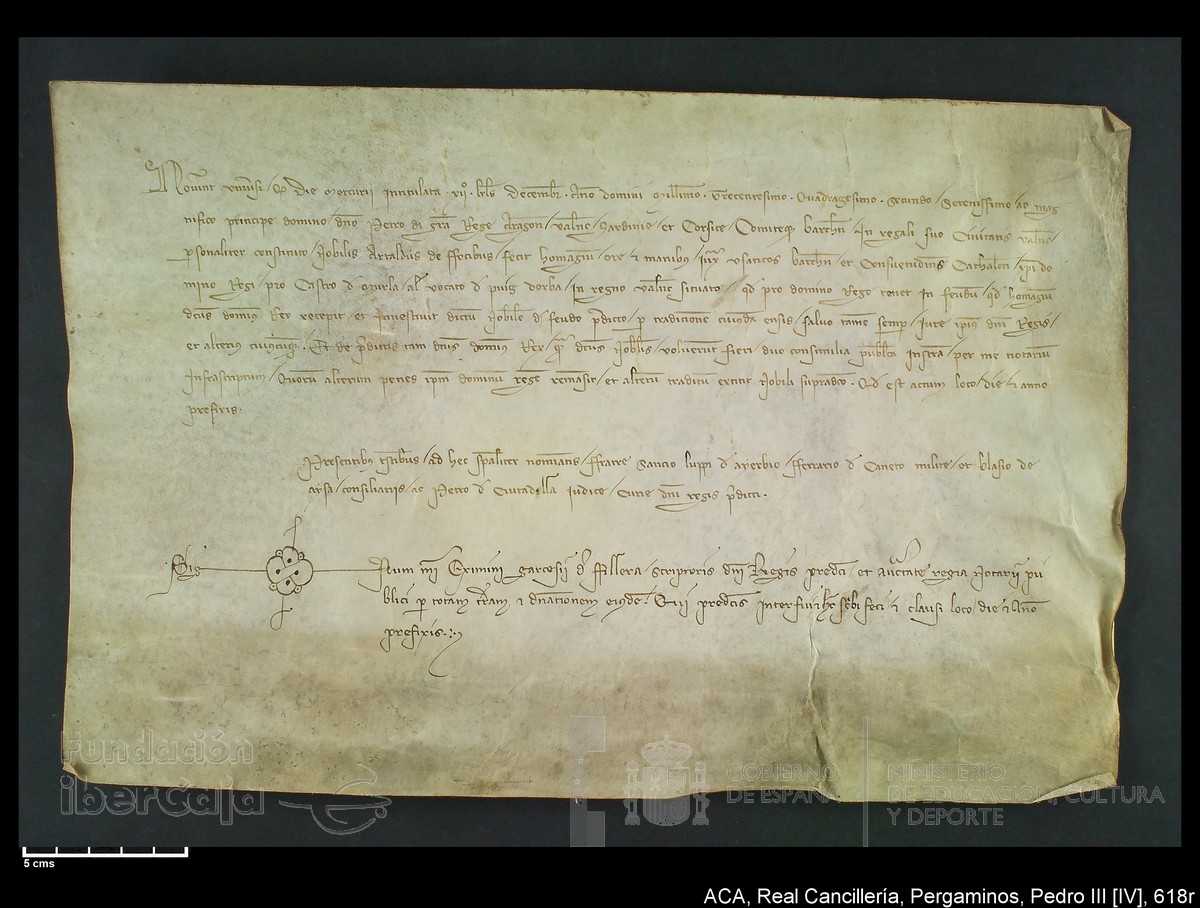 Noverint universi / q die mercurii intitulata .xii. kls decembr. Anno domini Millimo. Trecentesimo. Quadragesimo. secundo / Serenissimo ac mag
nifico principe domino / dno Petro di gra Rege Aragon / Valnc / Sardinie / et Corsice / Comiteq barchn. In regali suo Civitatis Valnc /
psonaliter constituto / Nobilis Artaldus de ffocibus / fecit homagiu / ore et manibus / iux usaticos barchn / et Consuetudines Cathalon / ipi do
mino Regi / pro Castro d Murla / al vocato d puig dorba / in regno Valnc situato / qd pro domino Rege tenet in feudu / qd homagiu
dcus domins Rex recepit / et investivit dictu Nobile d feudo pdicto / p tradicione cuiusda ensis / salvo tame semp / iure ipius dni Regis /
et alterius cuiuscuq. Et de pdictis tam dcus domins Rex / q dcus Nobilis / voluerut fieri / duo consimilia publica instra / per me notariu
infrascriptum / Quoru alterum penes ipm dominu rege remasit / et alteru traditu extitit Nobili supradco. Qd est actum loco / die et anno
prefixis.
Presentibus testibus / ad hec spaliter nominatis / ffratre Sancio luppi d ayerbio / fferrario d Caneto milite / et blasio de
aysa / consiliariis / ac Petro d Ciutadella iudice / Curie dni regis pdicti.
Sig num mei Eximini garcesii d ffillera / scriptoris dni Regis predci / et auctate regia Notarii pu
blici p totam terram et dnationem eiusde / Qui predcis interfui / hec scbi feci et clausi loco / die et anno
prefixis.
Fundación
iberCaja
GOBIERNO
DE ESPAÑA
MINISTERIO
DE EDUCACIÓN, CULTURA
Y DEPORTE
5 cms
ACA, Real Cancillería, Pergaminos, Pedro III [IV], 618r